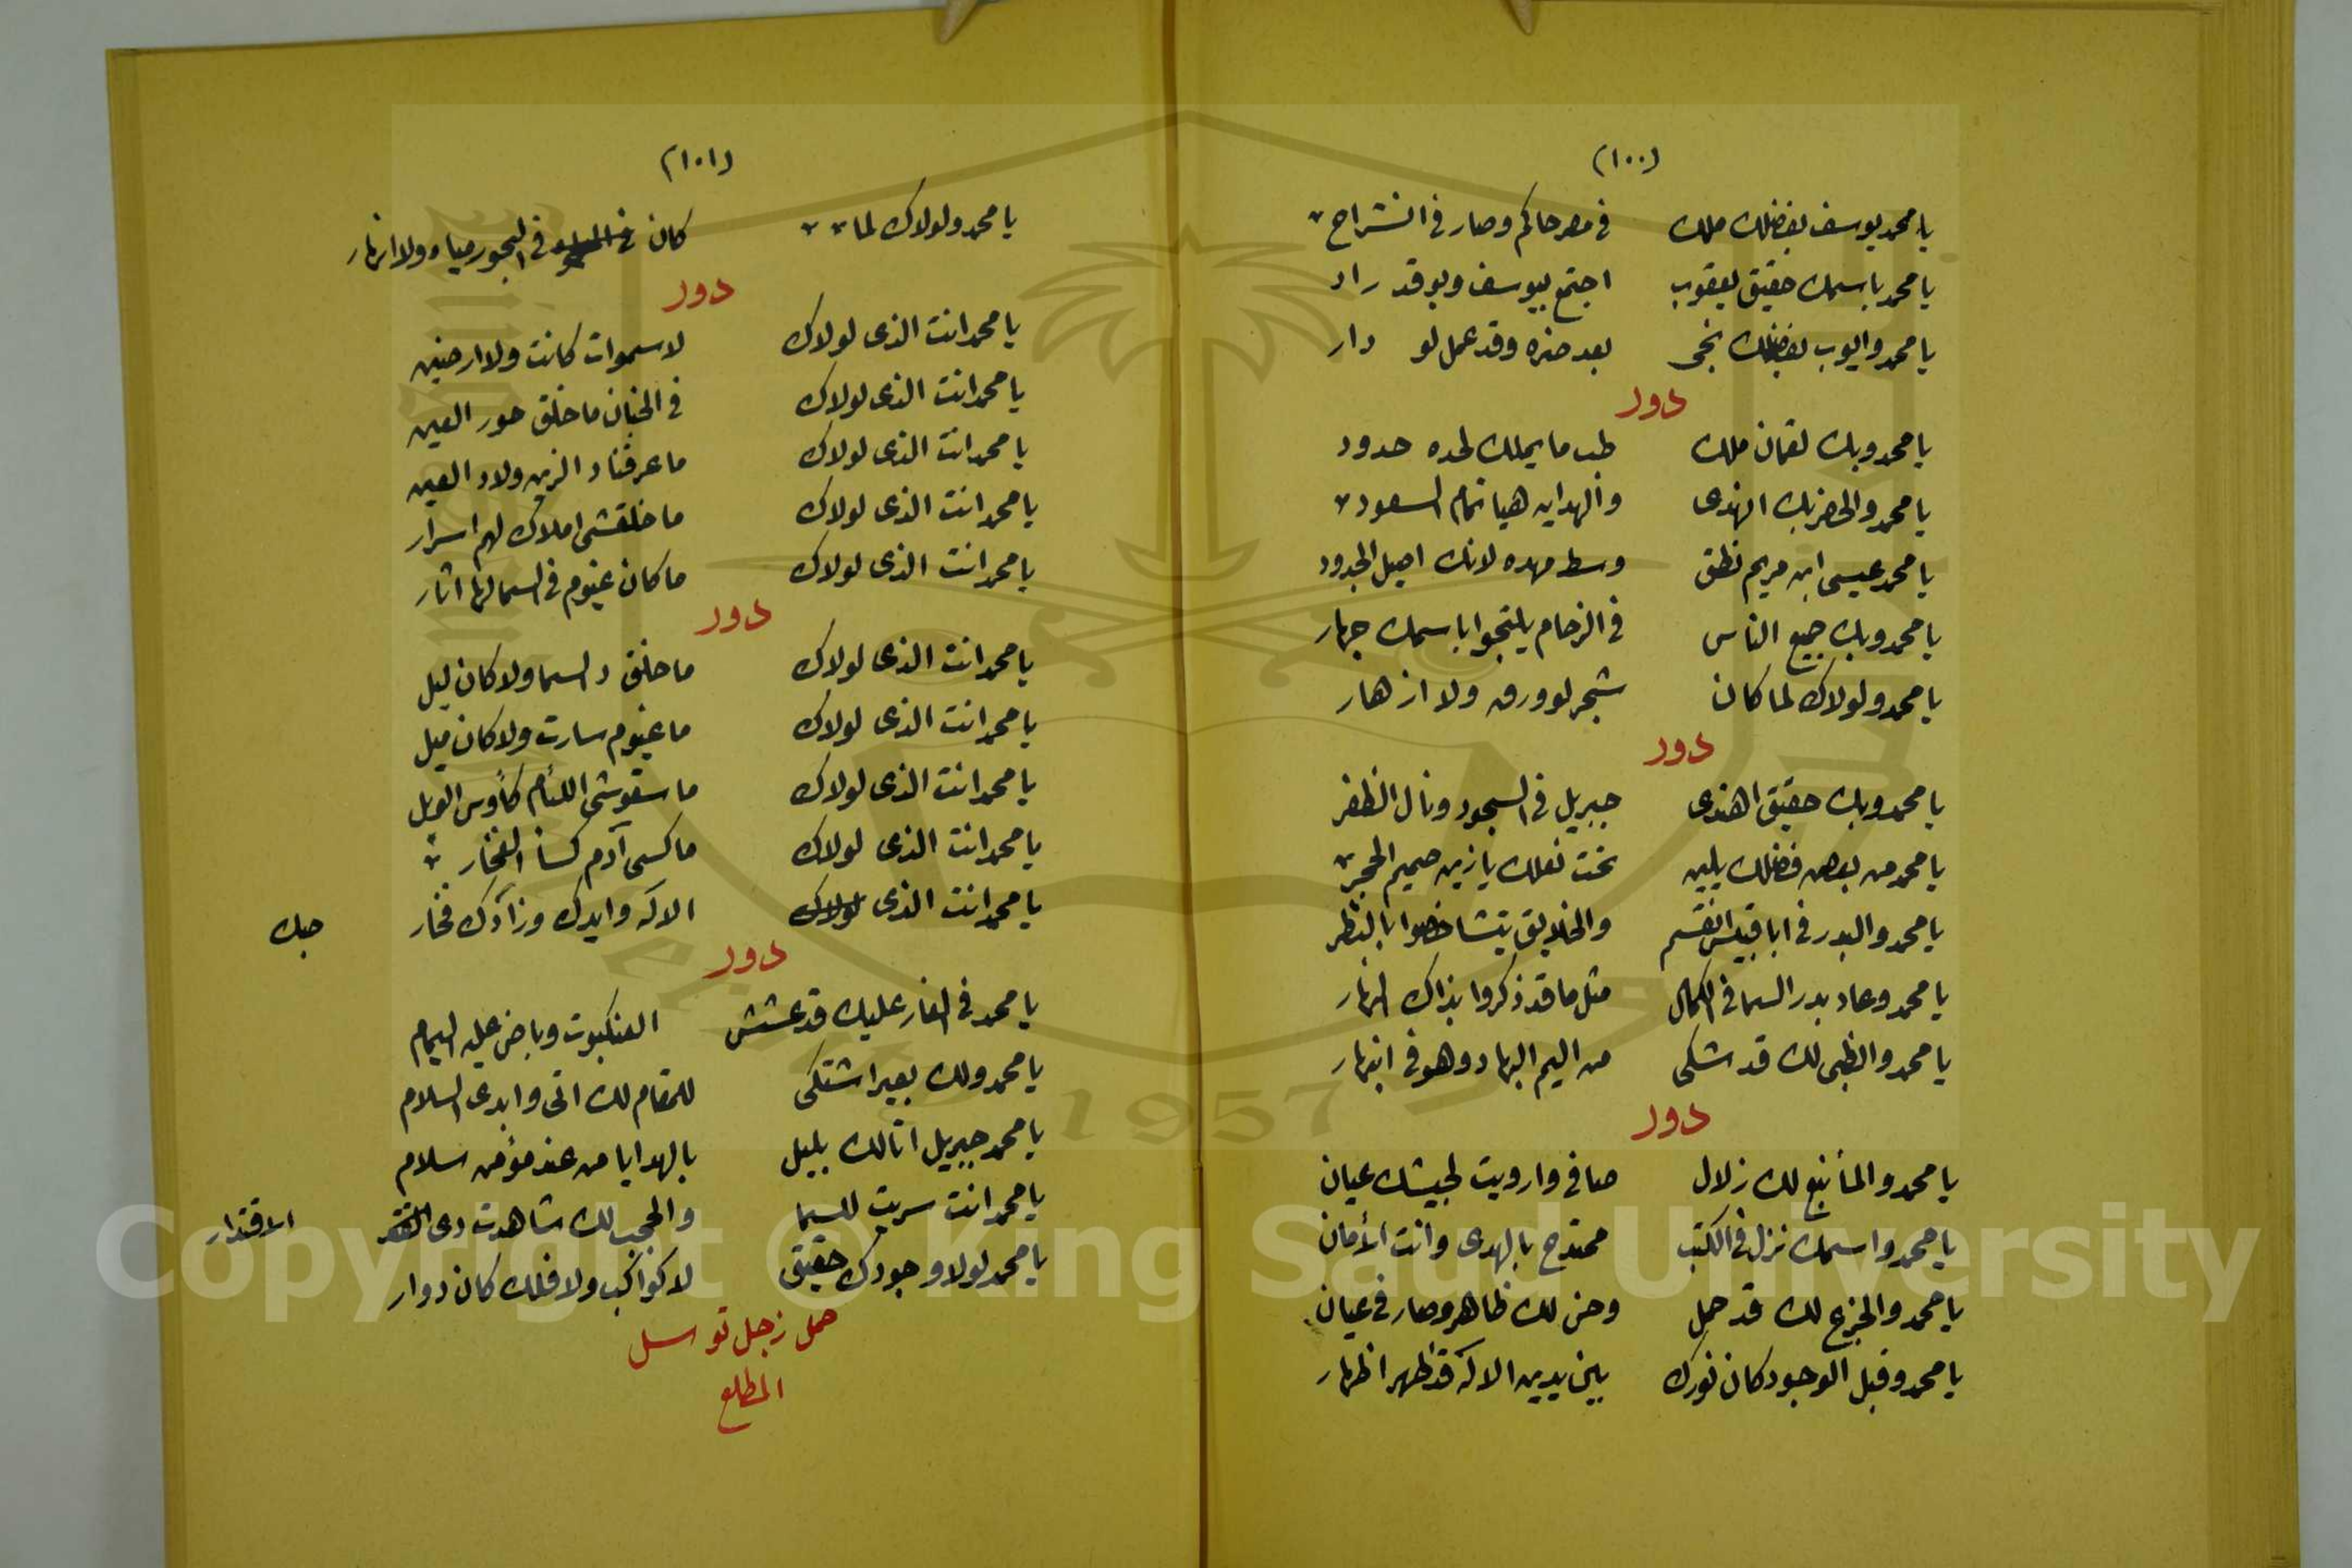 (١٠٠)
يا محمد يوسف بفضلك ملك في مصر حاكم وصار في انشراح
يا محمد باسمك حقيق يعقوب اجتمع بيوسف وبو قد راد
يا محمد وايوب بفضلك نجى بعد ضره وقد عمل لو دار
دور
يا محمد وبك لقمان ملك طب ما يملك لحده حدود
يا محمد والخضر بك اهتدى والهدايه هيا تمام السعود
يا محمد عيسى ابن مريم نطق وسط مهده لانك اصيل الجدود
يا محمد وبك جميع الناس في الزحام يلتجوا باسمك جهار
يا محمد ولولاك لما كان شجر لو ورق ولا ازهار
دور
يا محمد وبك حقيق اهتدى جبريل في السجود ونال الظفر
يا محمد من بعض فضلك يلين تحت نعلك يا زين صميم الحجر
يا محمد والبدر في ابا قبيس انقسم والخلايق يتشاخصوا بالنظر
يا محمد وعاد بدر السما في الكمال مثل ما قد ذكروا بذاك النهار
يا محمد والظبى لك قد شكى من اليم البهاد وهو في انبهار
دور
يا محمد والمأ نبع لك زلال صافى وارويت لجيشك عيان
يا محمد واسمك نزل في الكتب ممتدح بالهدى وانت الأمان
يا محمد والجزع لك قد حمل وحن لك ظاهر وصار في عيان
يا محمد وقبل الوجود كان نورك بين يدين الاله قد ظهر اظهار
(١٠١)
يا محمد ولولاك لما كان في البحور مياه ولا انهار
دور
يا محمد انت الذى لولاك لا سموات كانت ولا ارضين
يا محمد انت الذى لولاك في الجنان ما خلق حور العين
يا محمد انت الذى لولاك ما عرفنا د الزين ولا د العين
يا محمد انت الذى لولاك ما خلقشى املاك لهم اسرار
يا محمد انت الذى لولاك ما كان غيوم في السما لها اثار
دور
يا محمد انت الذى لولاك ما خلق د السما ولا كان ليل
يا محمد انت الذى لولاك ما غيوم سارت ولا كان ميل
يا محمد انت الذى لولاك ما سقوشى اللئام كأوس الويل
يا محمد انت الذى لولاك ما كسى آدم كسأ الفخار
يا محمد انت الذى لولاك الاله وايدك وزادك فخار حبك
دور
يا محمد في الغار عليك قد عشش العنكبوت وباض عليه اليمام
يا محمد ولك بعير اشتكى للمقام لك اتى وابدى السلام
يا محمد جبريل اتا لك بليل بالهدايا من عند مؤمن سلام
يا محمد انت سريت للسما والحجب لك شاهدت دى الاقتدار
يا محمد لولا وجودك حقيق لا كواكب ولا فلك كان دوار
حمل زجل توسل
المطلع
Copyright © King Saud University
1957